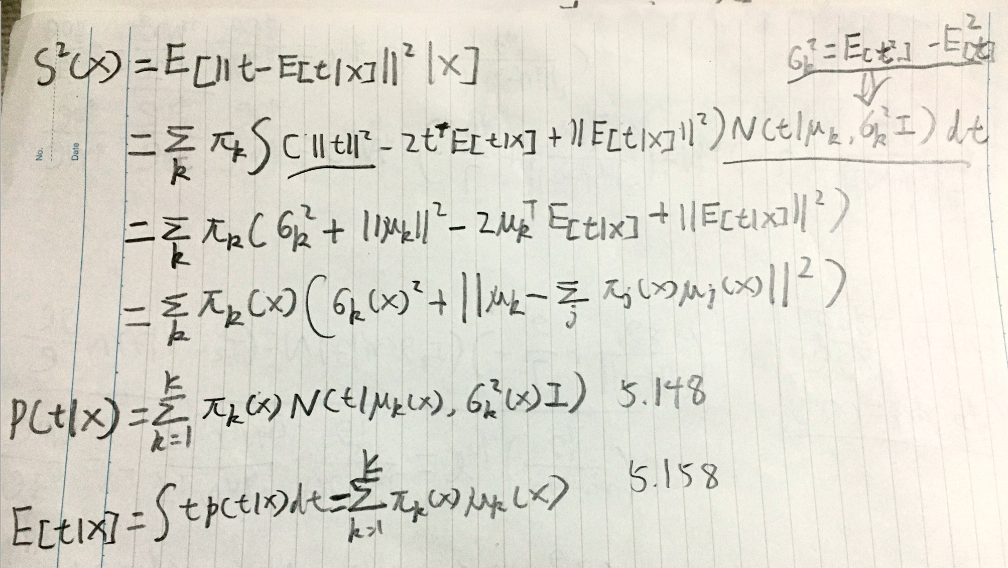 S²(x) = E[||t-E[t|x]||² |x]
σk² = E[t²] - E[t]²
= Σk πk ∫ (||t||² - 2tᵀE[t|x] + ||E[t|x]||²) N(t|μk, σk²I) dt
No.
Date
= Σk πk (σk² + ||μk||² - 2μkᵀ E[t|x] + ||E[t|x]||²)
= Σk πk(x) (σk(x)² + ||μk - Σj πj(x)μj(x)||²)
P(t|x) = Σk=1K πk(x) N(t|μk(x), σk²(x)I) 5.148
E[t|x] = ∫ t p(t|x)dt = Σk=1K πk(x) μk(x) 5.158